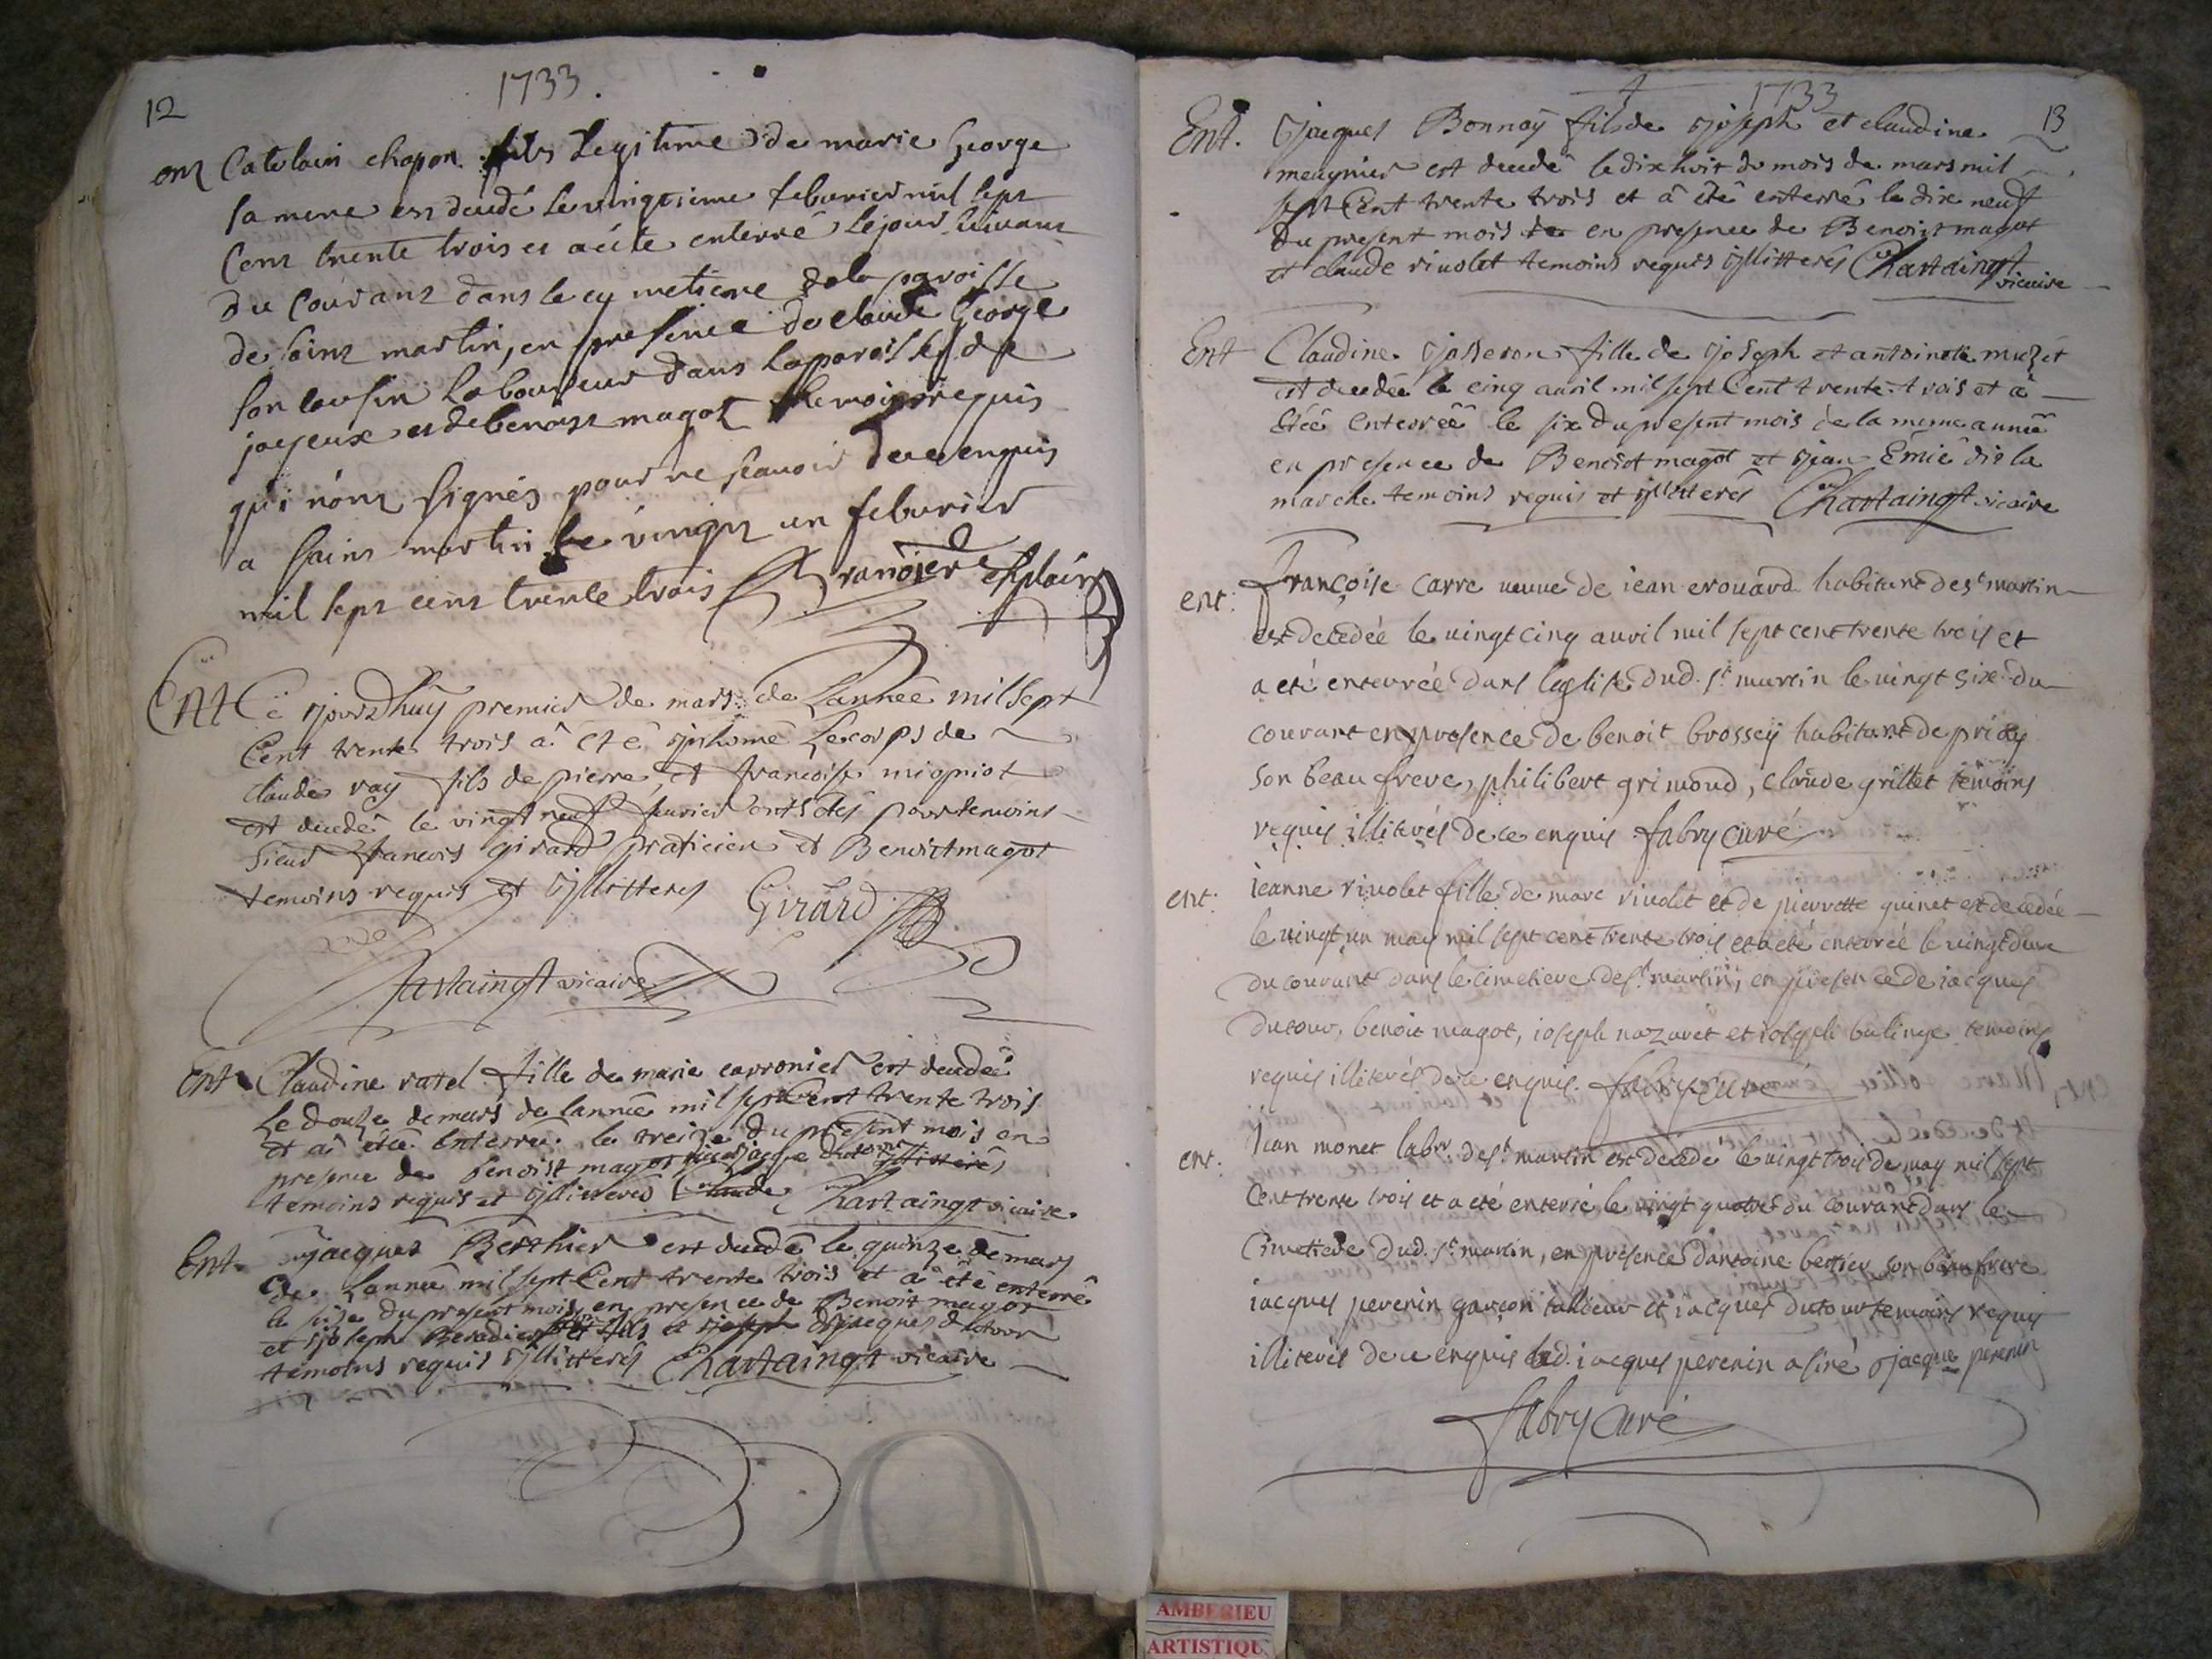 12
1733.
ent Catelain chapon fils Legitime de marie George
sa mere est decedé le vingtieme feburier mil sept
Cent trente trois et a ete enterré le jour suivant
du Courant dans le cymetiere de la paroisse
de saint martin, en presence de claude George
son cousin Laboureur dans la paroisse de
joyeux et de benoist magot temoins requis
qui n'ont signés pour ne scauoir de ce enquis
a saint martin le vingt un feburier
mil sept cent trente trois
Ent Ce jourdhuy premier de mars de Lanneé mil sept
Cent trente trois â eté jnhumé Le corps de
claude ray fils de pierre, et francoise migniot
est decedé le vingt neuf feurier ont etés pour temoins
sieur francois girard praticien et Benoict magot
temoins requis et jllitteres Girard
Chartaingt vicaire
Ent Claudine ratel fille de marie carronier est decedeé
Le douze de mars de lanneé mil sept Cent trente trois
et â eteé Enterreé le treize du present mois en
presence de benoist magot
temoins requis et jlliterés Chartaingt vicaire.
Ent jacques Berthier est decedé le quinze de mars
de Lanneé mil sept Cent trente trois et â êté enterré
le seize du present mois en presence de Benoit magot
et joseph et jacques dutour
temoins requis jllitterés Chartaingt vicaire
1733
13
Ent. jacques Bonnay fils de joseph et claudine
meugnier est decedé le dix huit du mois de mars mil
sept Cent trente trois et â êté enterré le dix neuf
du present mois en presence de Benoist magot
et claude riuolet temoins requis jllitterés Chartaingt
vicaire
Ent Claudine josseron fille de joseph et antoinete muzet
est decedée le cinq auril mil sept Cent trente trois et â
êteé Enterreé le six du present mois de la meme anneé
en presence de Benoist magot et jean Emié dit la
marche temoins requis et jlliterés Chartaingt vicaire
ent: Françoise carre ueuue de iean erouard habitant de st martin
est decedée le uingt cinq auril mil sept cent trente trois et
a eté enterrée dans leglise dud. st martin le uingt six du
courant en presence de benoit brossey habitant de priay
son beau frere, philibert grimoud, claude grillet temoins
requis illiterés de ce enquis fabry curé
ent: ieanne riuolet fille de marc riuolet et de pierrette guinet est decedée
le uingt un may mil sept cent trente trois et a eté enterrée le uingt deux
du courant dans le cimetiere de st. martin, en presence de iacques
dutour, benoit magot, ioseph nazaret et ioseph balinge temoins
requis illiterés de ce enquis. fabry curé
ent: iean monet labr. de st. martin est decedé le uingt trois de may mil sept
cent trente trois et a eté enterré le vingt quatre du courant dans le
cimetiere dud. st. martin, en presence dantoine bertier son beau frere
iacques perenin garçon tailleur et iacques dutour temoins requis
illiterés de ce enquis led. iacques perenin a siné jacque perenin
fabry curé
AMBERIEU
ARTISTIQU